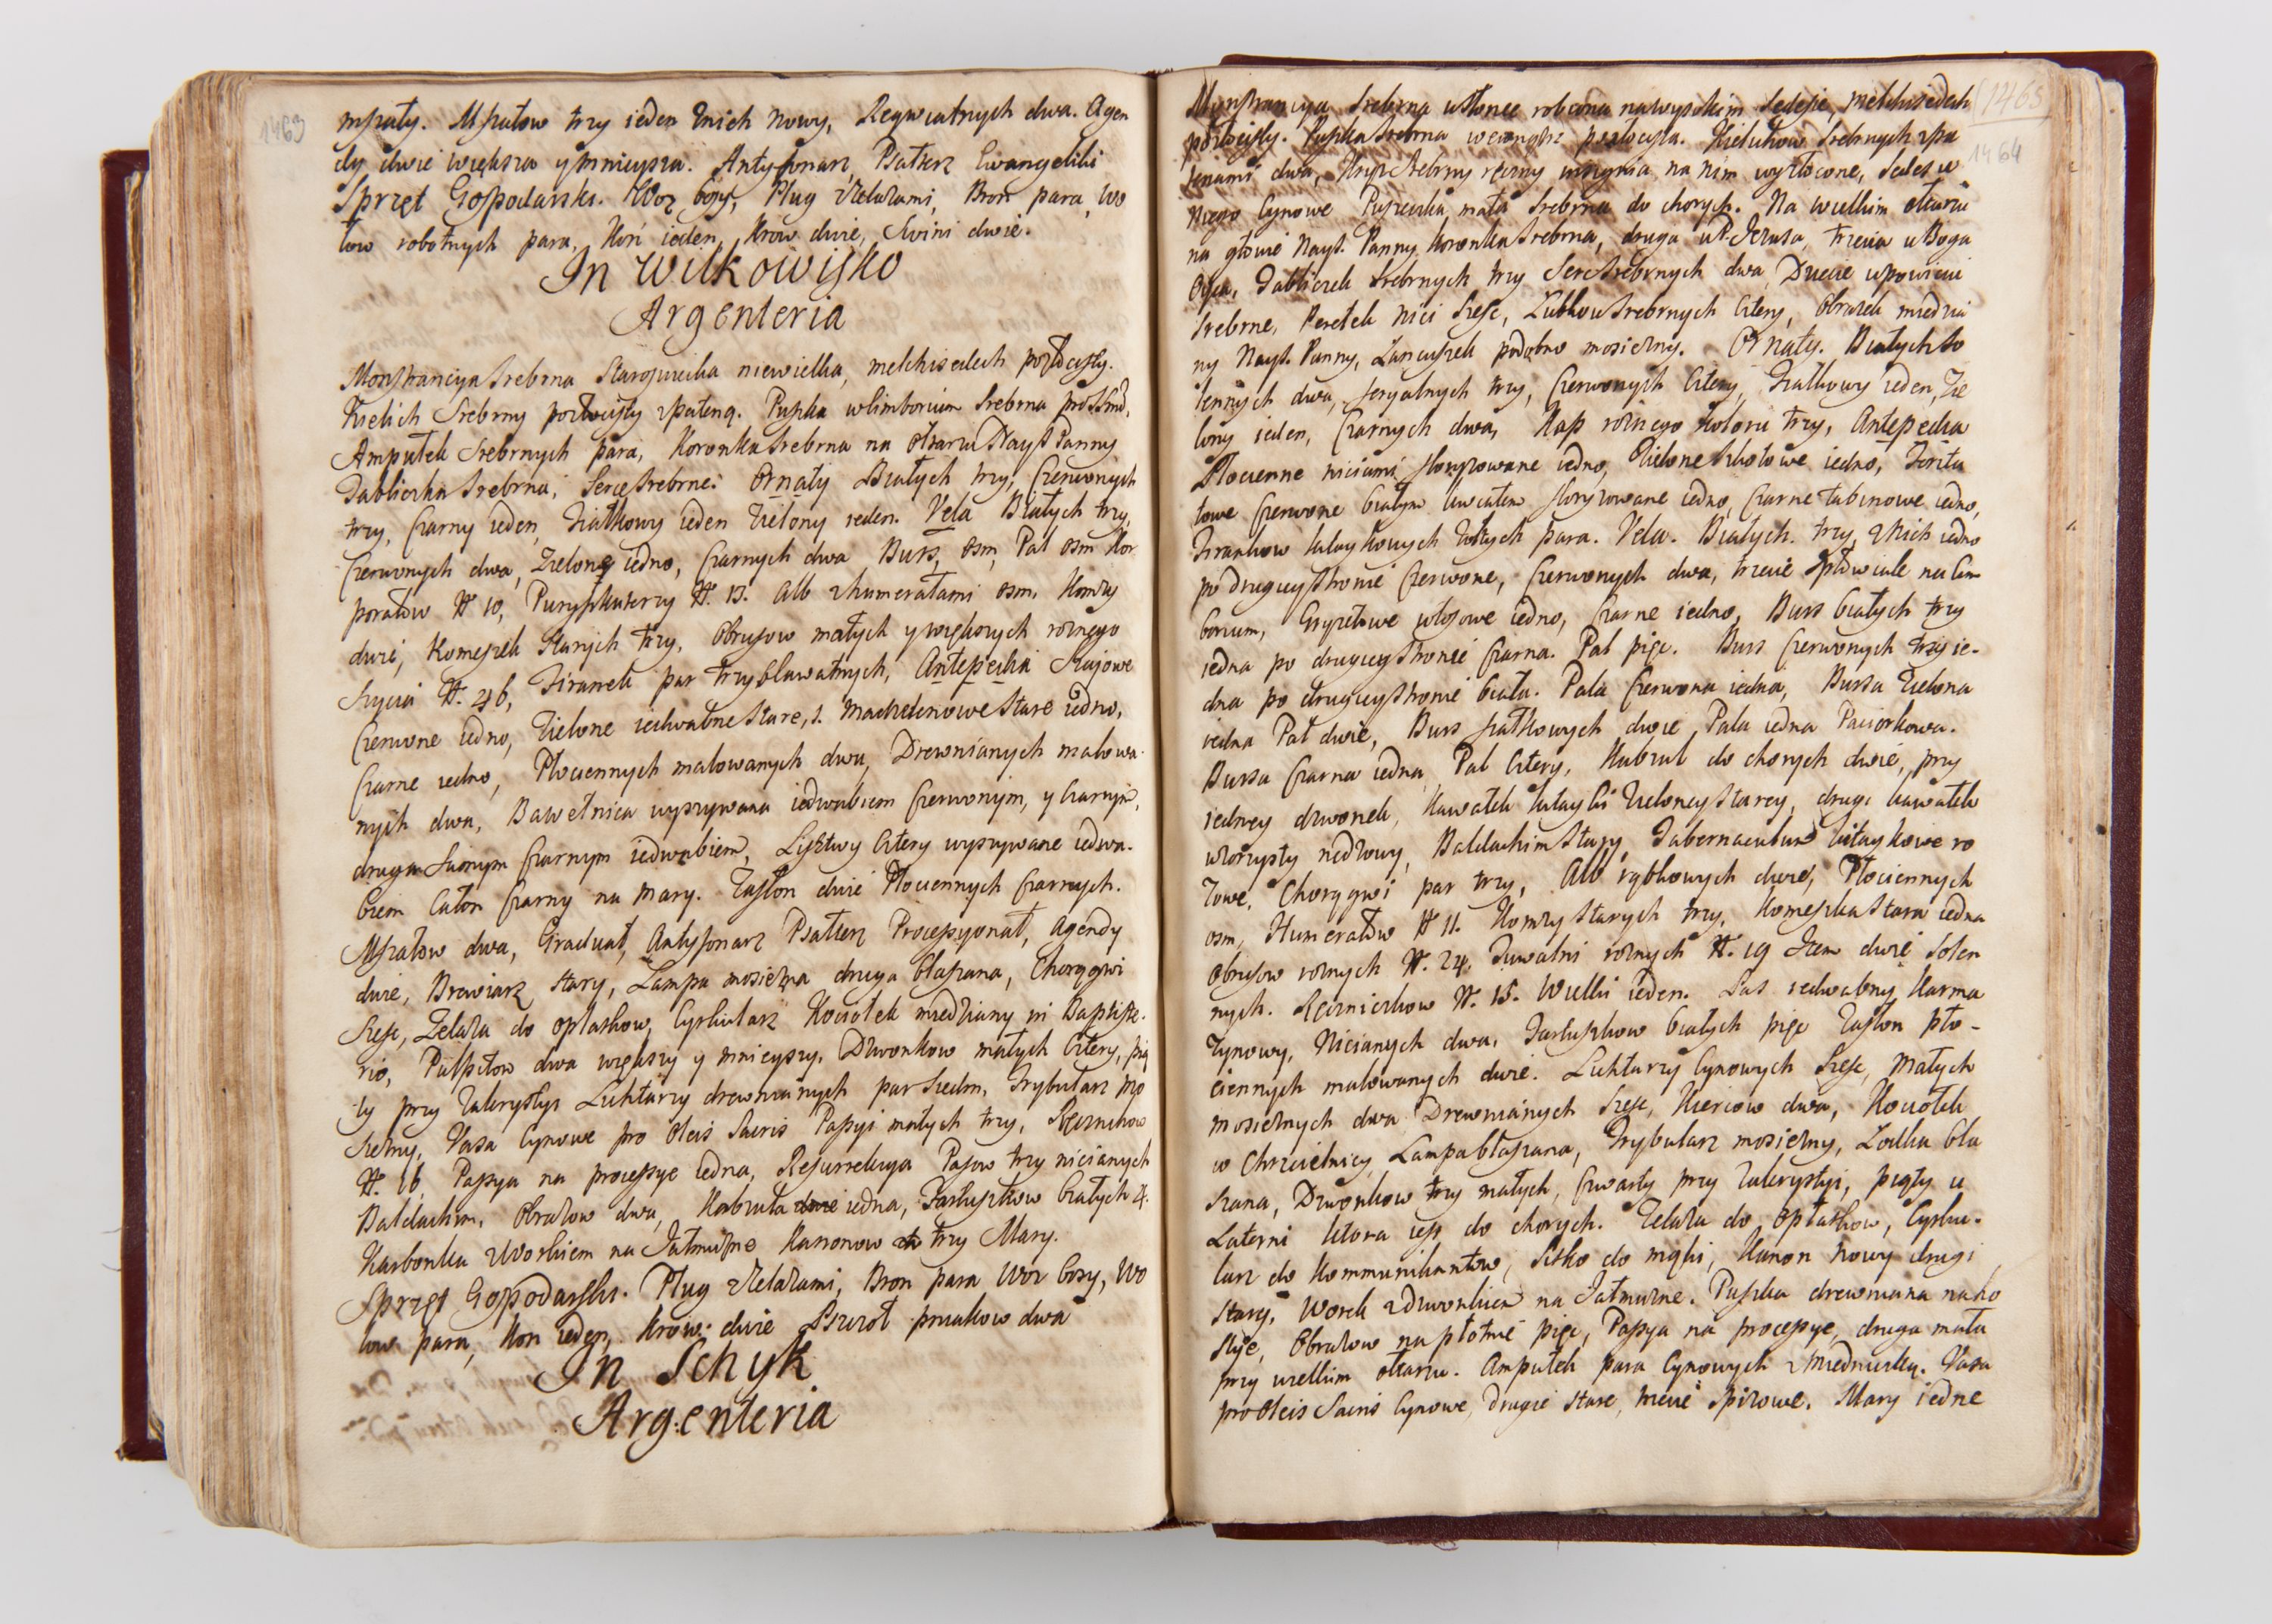 1463
mszały. Mszałow trzy ieden z nich nowy, Reqwialnych dwa. Agen
dy dwie większa y mnieysza. Antyfonarz, Psałterz Ewangeliki
Sprzęt Gospodarski. Woz bosy, Pług z żelazami, Bron para, Wo
łow robotnych para, Koń ieden, Krow dwie, Swini dwie.
In Wilkowisko
Argenteria
Monstrancya srebrna staroswiecka niewielka, melchisedech pozłocisty.
Kielich srebrny pozłocisty z pateną. Puszka w Cimborium srebrna pro SSmo,
Ampułek srebrnych para, Koronka srebrna na ołtarzu Nayś Panny
Tabliczka srebrna, Serce srebrne. Ornaty Białych trzy, Czerwonych
trzy, Czarny ieden, Fiałkowy ieden Zielony ieden. Vela Białych trzy,
Czerwonych dwa, Zielone iedno, Czarnych dwa Burs, osm, Pal osm Kor
porałow N. 10, Puryfikaterzy N. 13. Alb z humerałami osm. Komży
dwie, Komeszek starych trzy, Obrusow małych y większych roznego
szycia N. 46, Firanek par trzy bławatnych, Antepedia Kraiowe
Czerwone iedno, Zielone iedwabne stare, 1. Machelenowe stare iedno,
Czarne iedno, Płociennych malowanych dwa, Drewnianych malowa-
nych dwa, Bawełnica wyszywana iedwabiem Czerwonym, y Czarnym,
druga samym Czarnym iedwabiem, Lisztwy cztery wyszywane iedwa-
biem Całon Czarny na Mary. Zasłon dwie Płociennych Czarnych.
Mszałow dwa, Graduał, Antyfonarz Psałterz Processyonał, Agendy
dwie, Brewiarz stary, Lampa mosiężna druga blaszana, Chorągwi
szesc, Zelaza do opłatkow, Cyrkularz Kociołek miedziany in Baptiste-
rio, Pulpitow dwa większy y mnieyszy, Dzwonkow małych cztery, pią
ty przy Zakrystyi Lichtarzy drewnianych par siedm, Trybularz mo
siężny, Vasa Cynowe pro oleis Sacris Passyi małych trzy, Ręcznikow
N. 16 Passya na processye iedna, Resurrekcya Pasow trzy nicianych
Baldachim, Obrazow dwa, Kobruła iedna, Fartuszkow białych 4.
Karbonka z Workiem na Jałmużnę Kanonow trzy Mary.
Sprzęt Gospodarski. Pług z żelazami, Bron para Woz bosy, Wo
łow para, Kon ieden, Krow dwie Pszczoł pniakow dwa
In Schyk
Argenteria
1465
1464
Monstrancya srebrna w słonce robiona na wysokim Sedesie, melchisedech
pozłocisty. Puszka srebrna wewnątrz pozłocista. Kielichow srebrnych z pa
tenami dwa, Krzyz srebrny ręczny insygnia na nim wyzłocone, Sedes u
niego Cynowe Puszecka mała srebrna do chorych. Na wielkim ołtarzu
na głowie Nayś. Panny Koronka srebrna, druga u P. Jezusa, trzecia u Boga
Oyca, Tabliczek srebrnych trzy Serc srebrnych dwa, Dziecie w powiciu
srebrne, Perełek nici szesc, Lubkow srebrnych cztery, Obrazek miedzia
ny Nayś. Panny, Lancuszek podobno mosiezny. Ornaty. Białych so
lennych dwa, feryalnych trzy, Czerwonych Cztery, Fiałkowy ieden, Zie
lony ieden, Czarnych dwa, Kap roznego koloru trzy, Antepedia
Płocienne niciami floryzowane iedno, Zielone iedno,
towe Czerwone białym kwiatem floryzowane iedno, Czarne tabinowe iedno,
Firankow kitaykowych żołtych para. Vela. Białych. trzy, z nich iedno
po drugiey stronie Czerwone, Czerwonych dwa, trzecie na Cim
borium, Gryzetowe iedno, Czarne iedno, Burs białych trzy
iedna po drugiey stronie Czarna. Pal pięc. Burs Czerwonych trzy ie-
dna po drugiey stronie biała. Pala Czerwona iedna, Bursa Zielona
iedna Pal dwie, Burs fiałkowych dwie Pala iedna Paciorkowa.
Bursa Czarna iedna Pal cztery, Kobrul do chorych dwie, przy
iedney dzwonek, Kawałek kitayki Zieloney starey, drugi kawałek
wzorzysty Baldachim stary, Tabernaculum kitaykowe ro
żowe, Chorągwi par trzy, Alb rąbkowych dwie, Płociennych
osm, Humerałow N 11. Komży starych trzy, Komeszka stara iedna
Obrusow roznych N. 24. Tuwalni roznych N. 19 Item dwie Solen
nych. Ręczniczkow N. 15. Wielki ieden. Pas iedwabny Karma
zynowy, Nicianych dwa, Fartuszkow białych pięc Zasłon pło-
ciennych malowanych dwie. Lichtarzy Cynowych szesc, Małych
mosiężnych dwa Drewnianych szesc, Kiercow dwa, Kociołek
w Chrzcielnicy, Lampa blaszana, Trybularz mosiężny, Lodka bla
szana, Dzwonkow trzy małych, Czwarty przy Zakrystyi, piąty u
Laterni ktora iest do chorych. Zelaza do opłatkow, Cyrku-
larz do Kommunikantow, Sitko do mąki, Kanon nowy drugi
stary, Worek z dzwonkiem na Jałmuznę. Puszka drewniana na ho
stye, Obrazow na płotnie pięc, Passya na processye, druga mała
przy wielkim ołtarzu. Ampułek para Cynowych z miedniczką. Vasa
pro oleis Sacris Cynowe, drugie stare, trzecie spizowe. Mary iedne